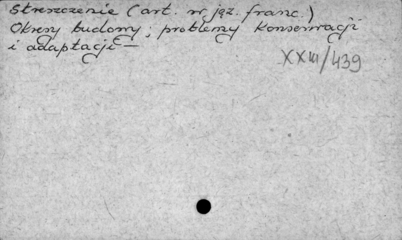 Streszczenie (art. w jęz. franc.)
Okresy budowy, problemy konserwacji
i adaptacji —
XXIII/439